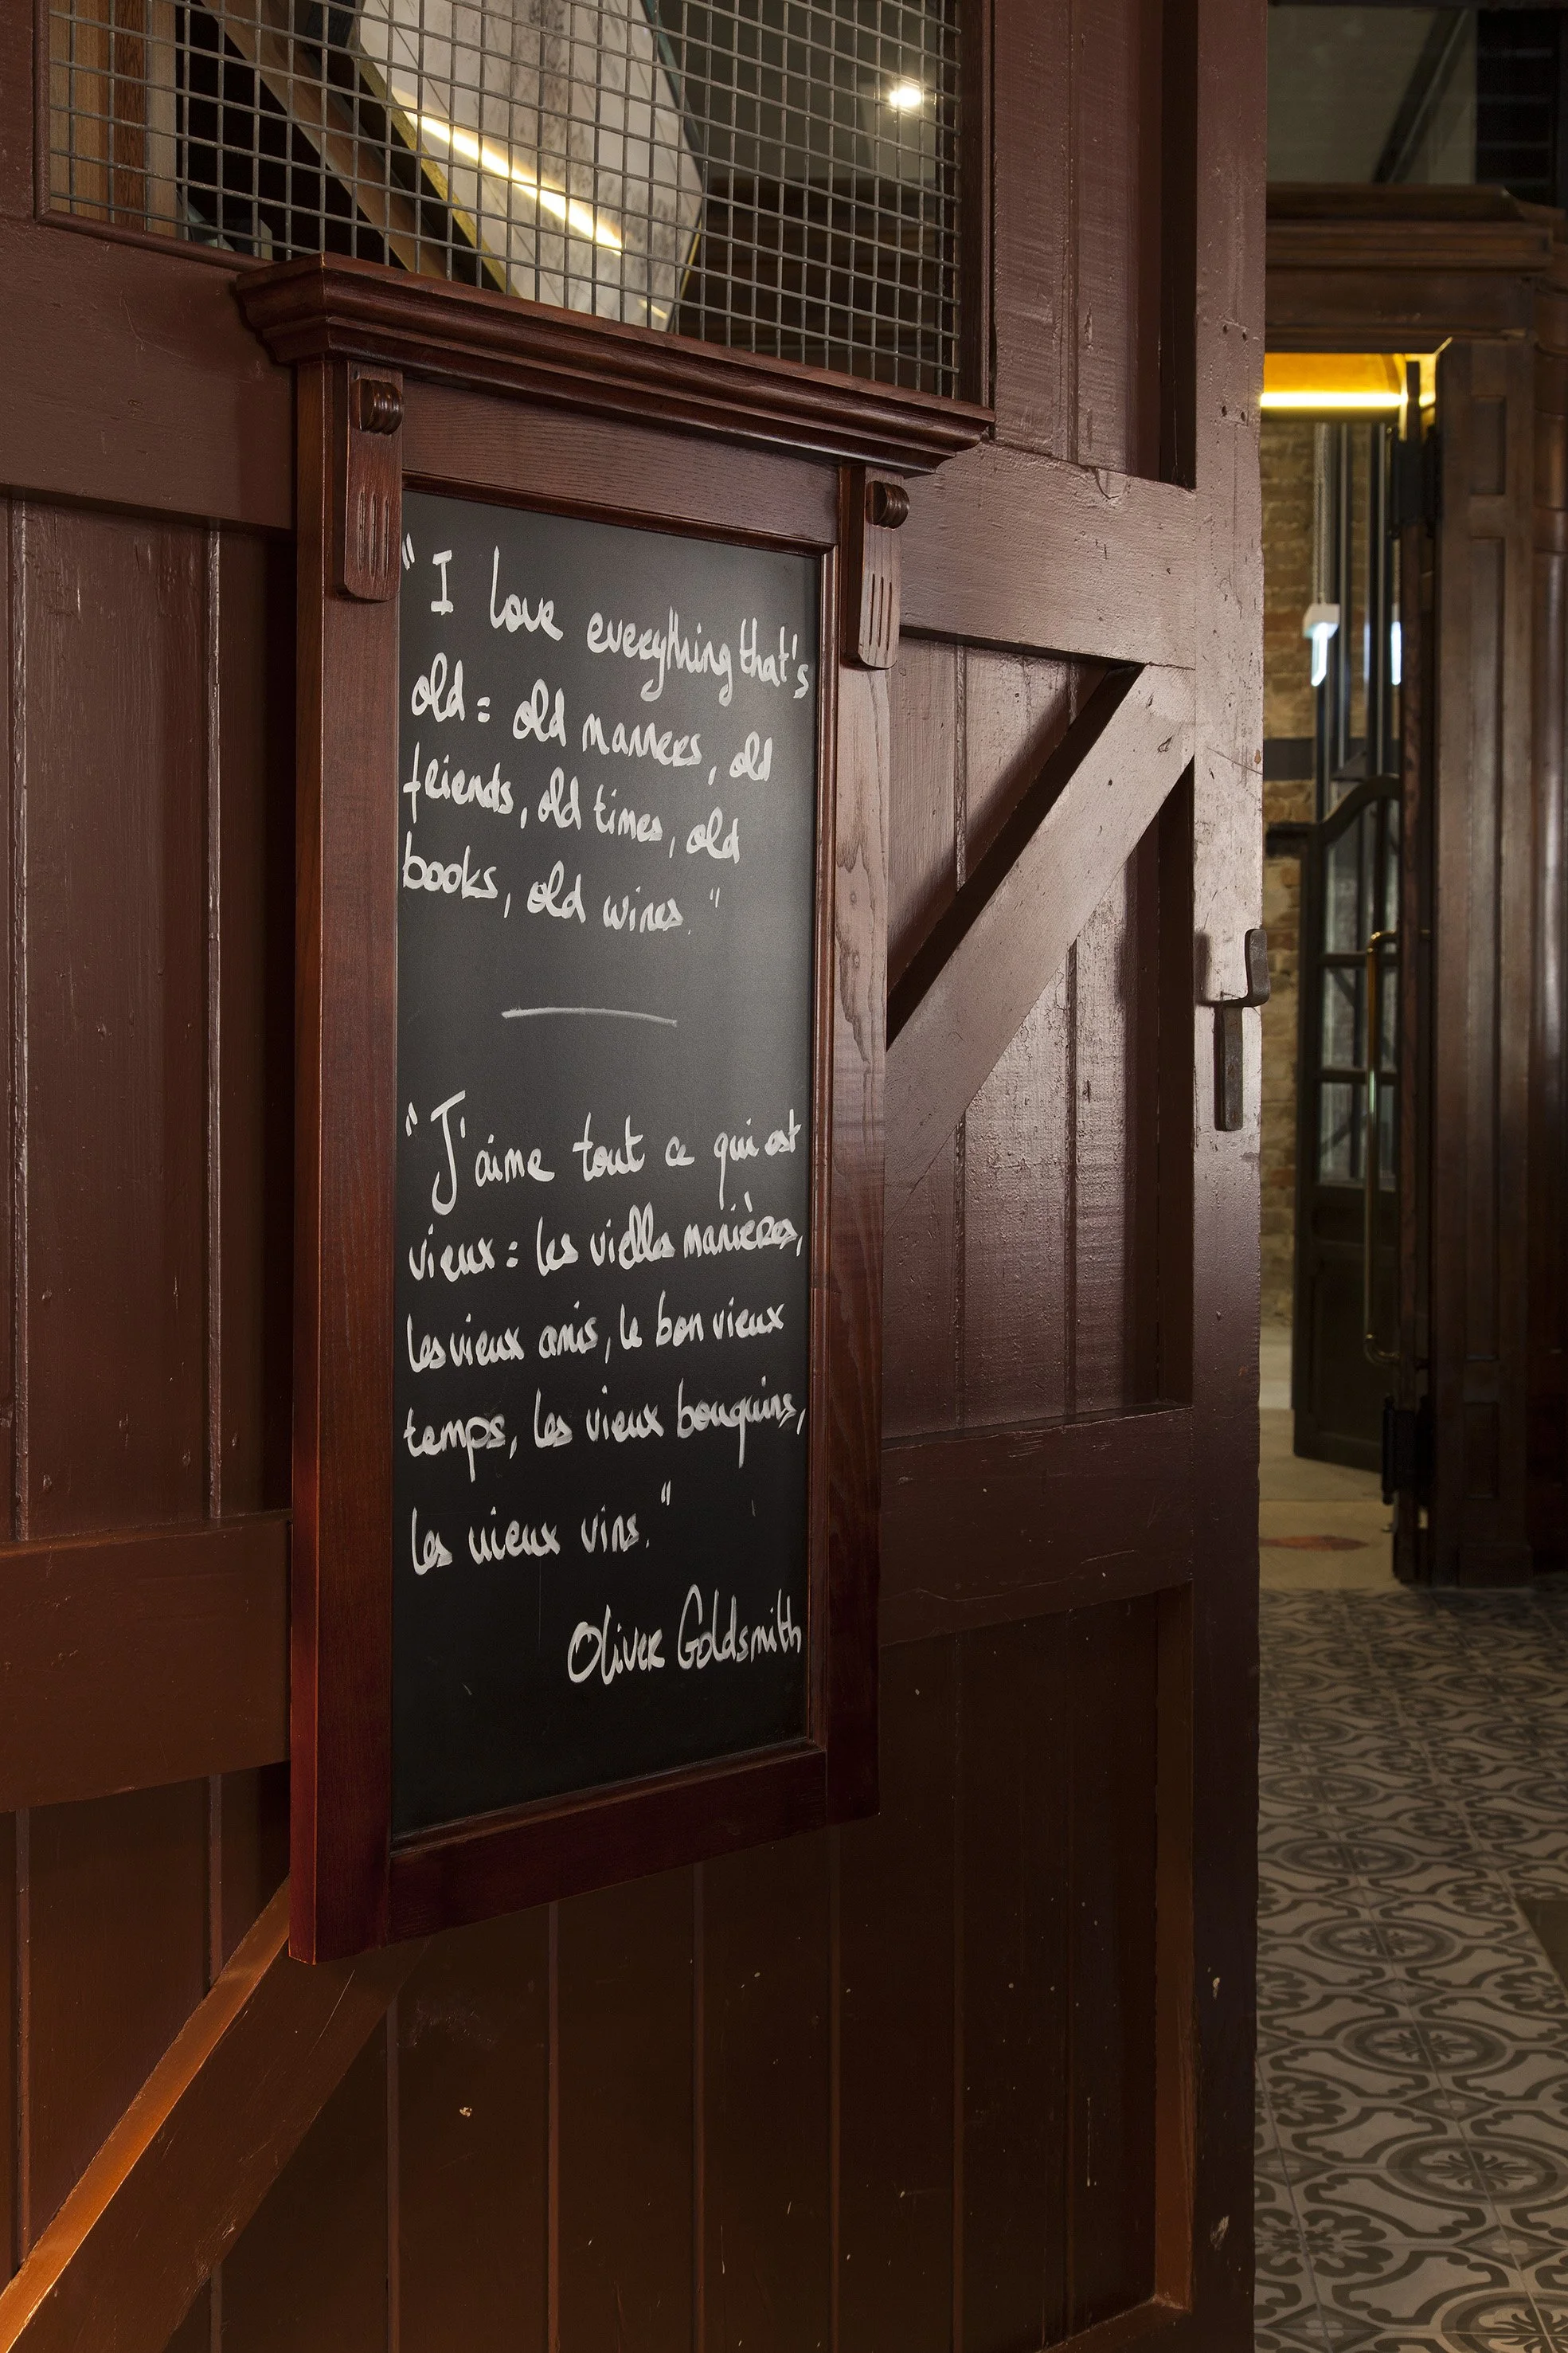 "I love everything that's
old: old manners, old
friends, old times, old
books, old wines."
"J'aime tout ce qui est
vieux: les vielles manières,
les vieux amis, le bon vieux
temps, les vieux bouquins,
les vieux vins."
Oliver Goldsmith